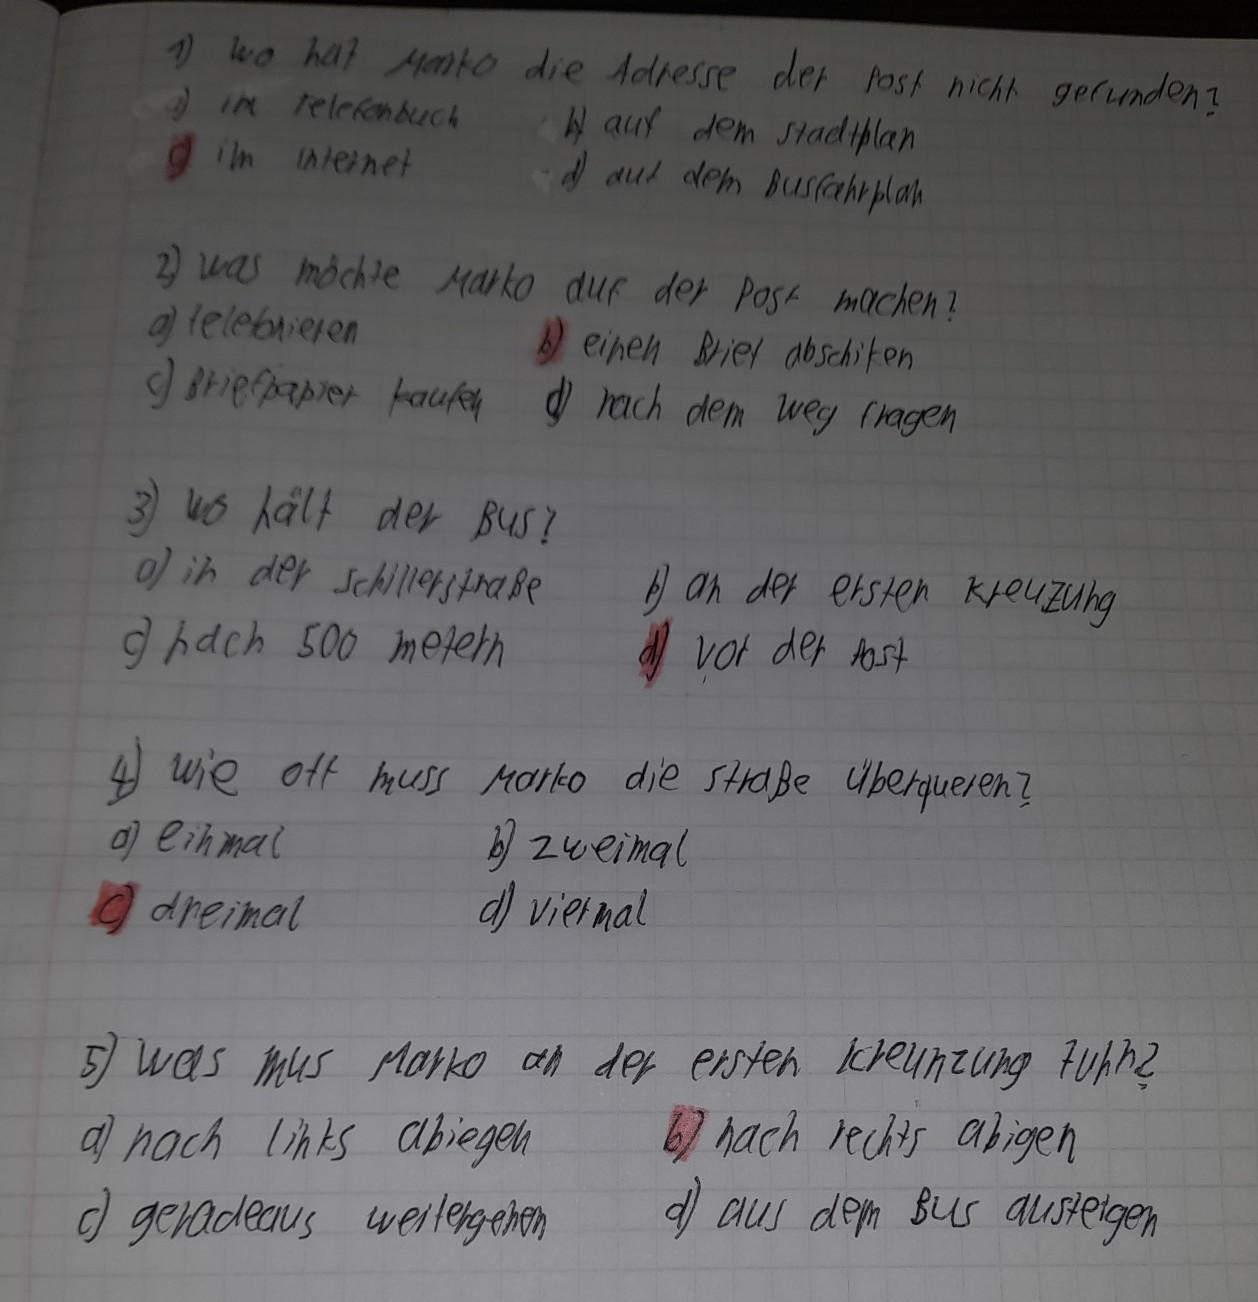 1) Wo hat Marko die Adresse der Post nicht gefunden?
a) im Telefonbuch b) auf dem Stadtplan
c) im Internet d) auf dem Busfahrplan
2) Was möchte Marko auf der Post machen?
a) telefonieren b) einen Brief abschiken
c) Briefpapier kaufen d) nach dem Weg fragen
3) Wo hält der Bus?
a) in der Schillerstraße b) an der ersten Kreuzung
c) nach 500 metern d) vor der Post
4) Wie oft muss Marko die Straße überqueren?
a) einmal b) zweimal
c) dreimal d) viermal
5) Was mus Marko an der ersten Kreunzung
a) nach links abiegen b) nach rechts abigen
c) geradeaus weitergehen d) aus dem Bus austeigen